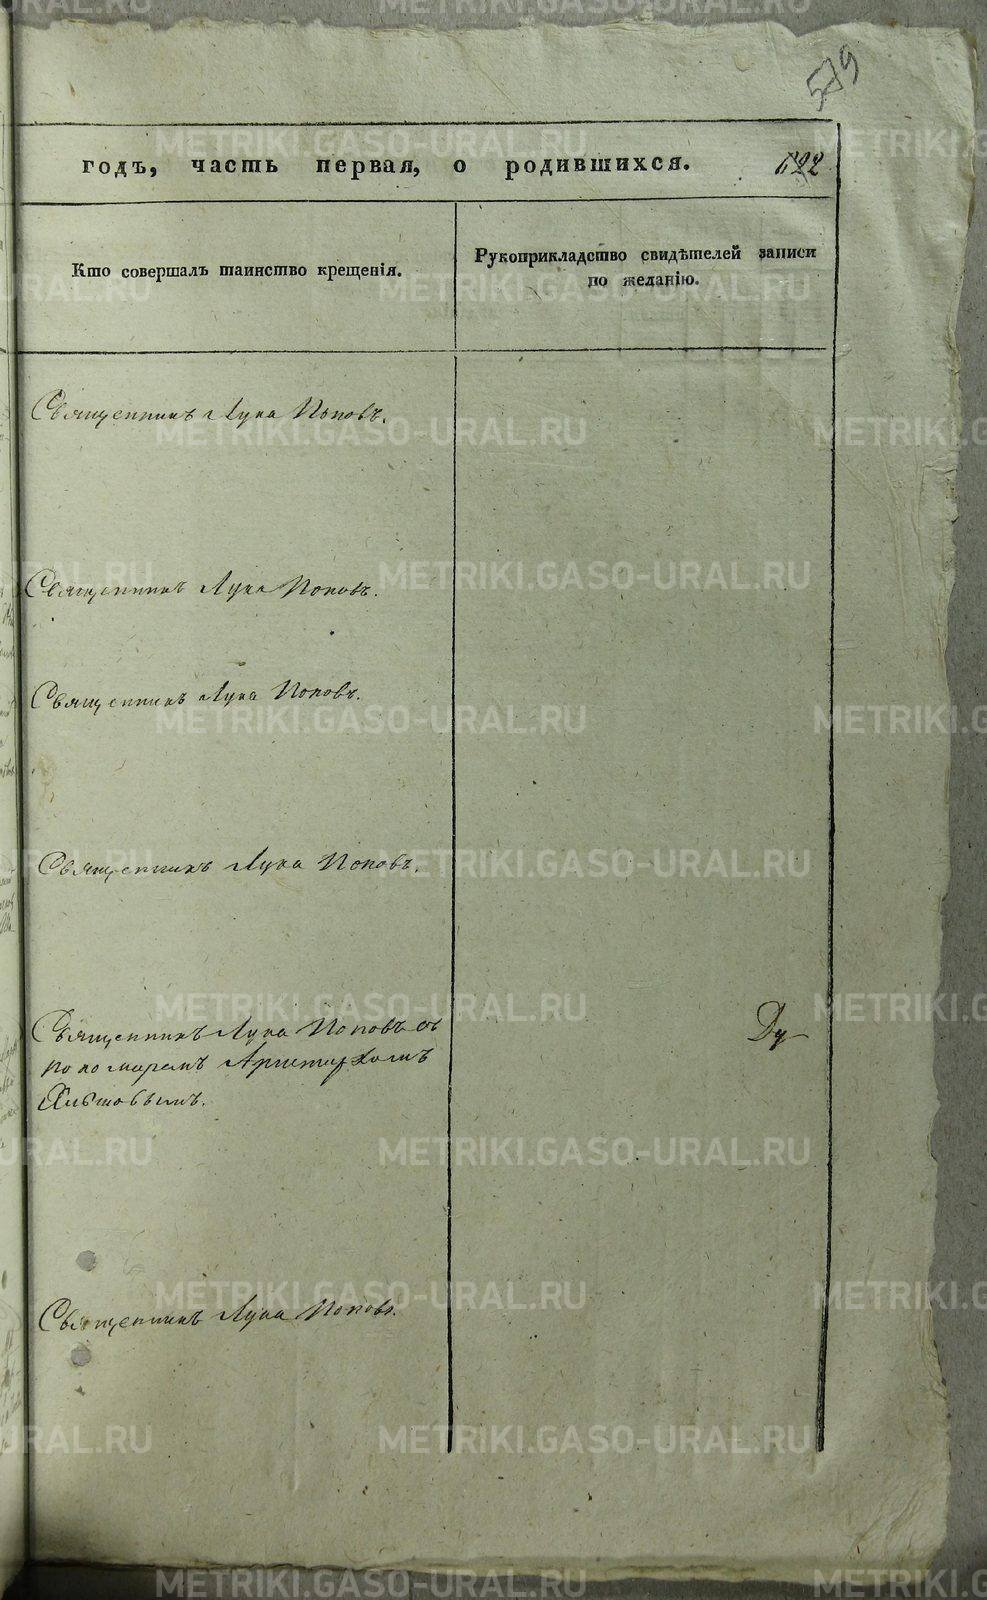 годъ, часть первая, о родившихся.
522
Кто совершалъ таинство крещенія.
Рукоприкладство свидѣтелей записи
по желанію.
Священникъ Лука Поповъ.
Священникъ Лука Поповъ.
Священникъ Лука Поповъ.
Священникъ Лука Поповъ.
Священникъ Лука Поповъ съ
пономаремъ Аристархомъ
Священникъ Лука Поповъ.
METRIKI.GASO-URAL.RU